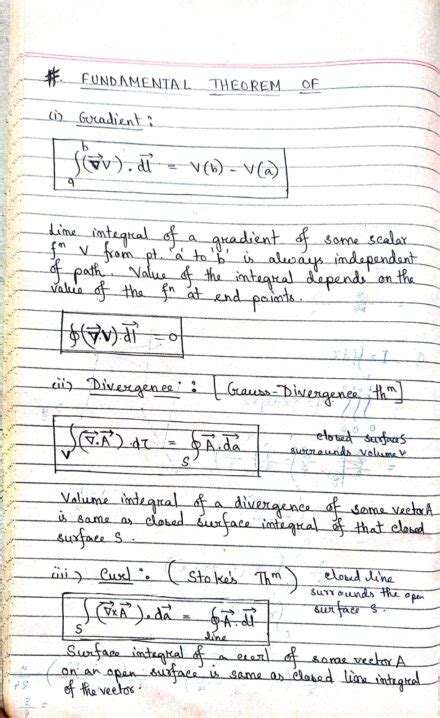 #. FUNDAMENTAL THEOREM OF
(i) Gradient :
b
∫(∇⃗V). dl⃗ = V(b) - V(a)
a
Line integral of a gradient of some scalar
fⁿ V from pt. 'a' to 'b' is always independent
of path. Value of the integral depends on the
value of the fⁿ at end points.
∮(∇⃗.V).dl⃗ = 0
(ii) Divergence : [Gauss-Divergence thᵐ]
∫(∇⃗.A⃗) . dτ = ∮A⃗.da⃗
V S
closed surface S
surrounds volume V
Volume integral of a divergence of some vector A
is same as closed surface integral of that closed
surface S.
(iii) Curl : (Stoke's Thᵐ)
closed line
surrounds the open
surface S.
∫(∇⃗×A⃗).da⃗ = ∮A⃗.dl⃗
S line
Surface integral of a curl of some vector A
on an open surface is same as closed line integral
of the vector.